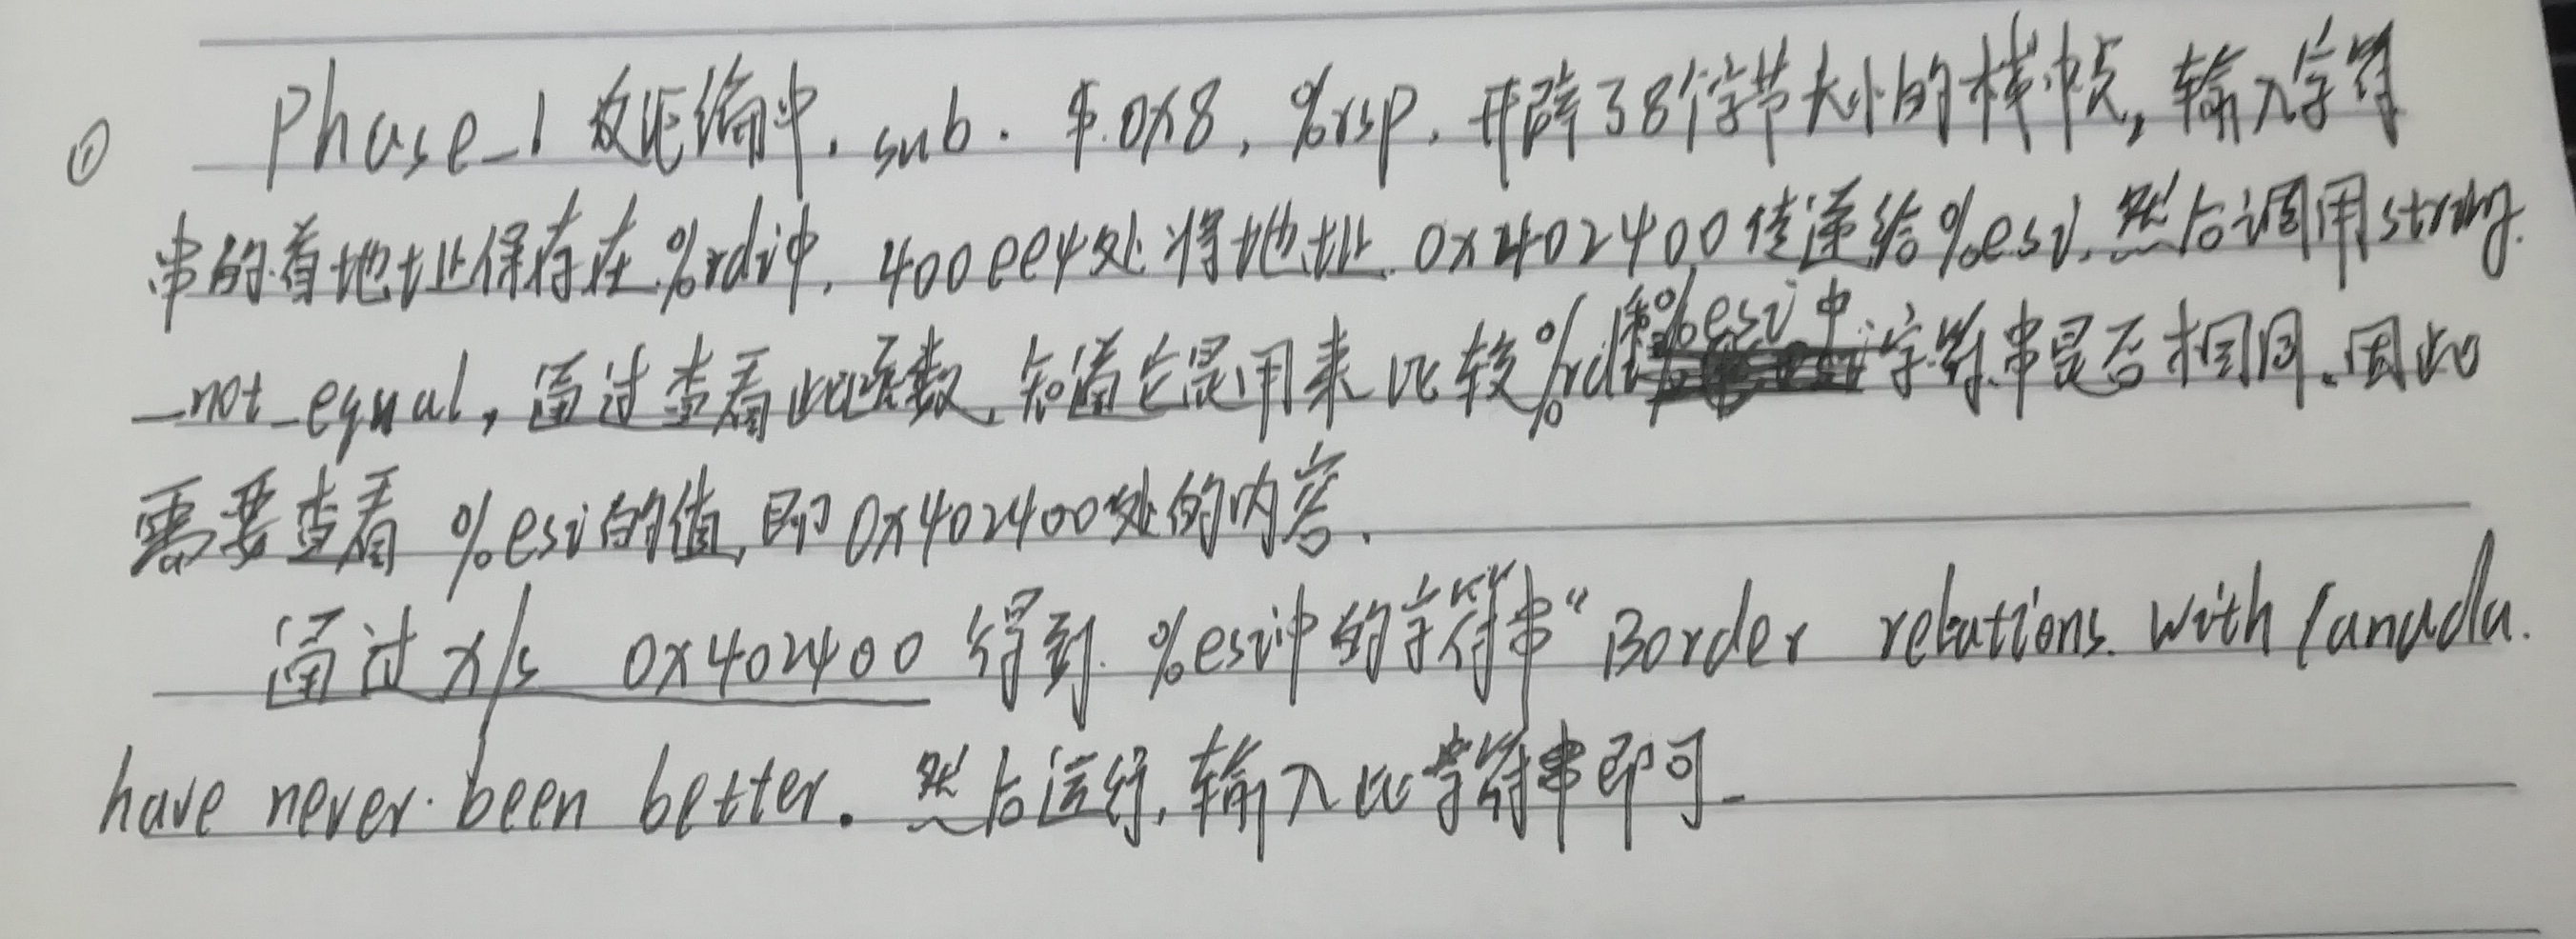 ① Phase_1 反汇编中. sub. $.0x8, %rsp. 开辟了8个字节大小的栈帧, 输入字符
串的首地址保存在%rdi中, 400ee4处将地址 0x402400传递给%esi, 然后调用string
_not_equal, 通过查看此函数, 知道它是用来比较%rdi和%esi中字符串是否相同. 因此
需要查看 %esi的值, 即0x402400处的内容.
通过 x/s 0x402400 得到 %esi中的字符串“Border relations with Canada
have never been better. 然后运行, 输入此字符串即可.